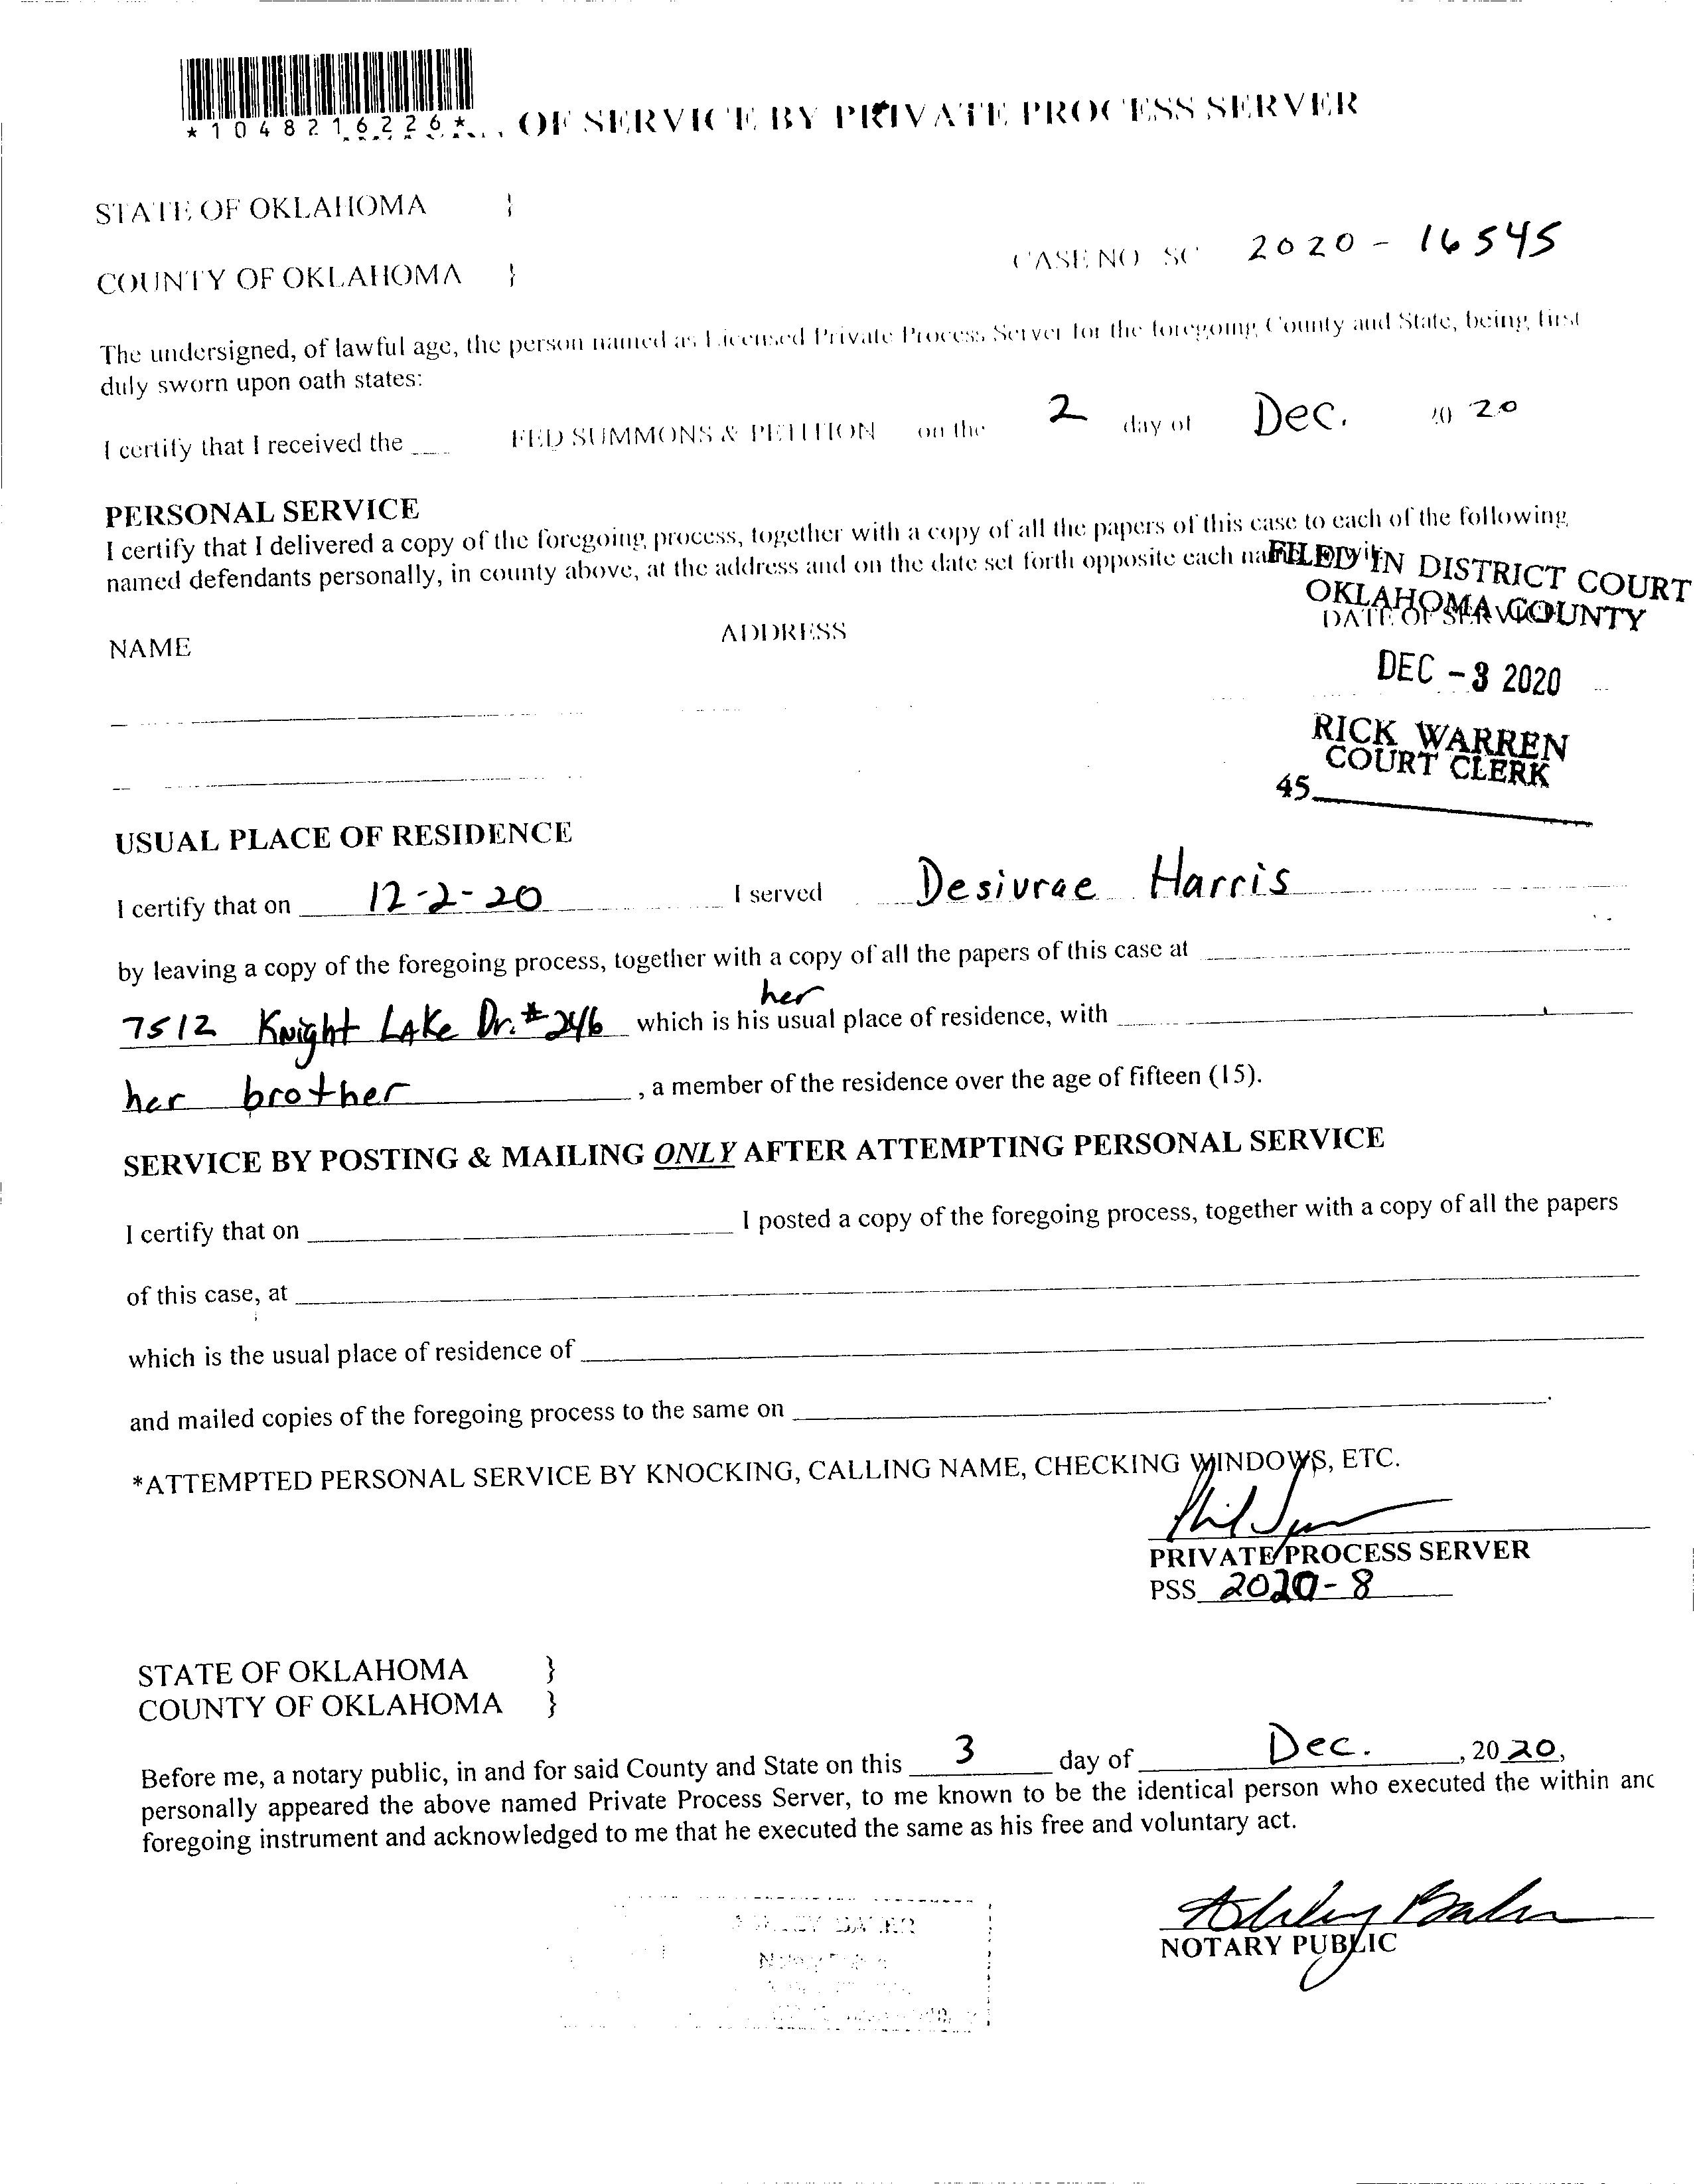 *1048216226*
OF SERVICE BY PRIVATE PROCESS SERVER
STATE OF OKLAHOMA }
CASE NO SC 2020-16545
COUNTY OF OKLAHOMA }
The undersigned, of lawful age, the person named as Licensed Private Process Server for the foregoing County and State, being first
duly sworn upon oath states:
I certify that I received the FED SUMMONS & PETITION on the 2 day of Dec. 20 20
PERSONAL SERVICE
I certify that I delivered a copy of the foregoing process, together with a copy of all the papers of this case to each of the following
named defendants personally, in county above, at the address and on the date set forth opposite each
FILED IN DISTRICT COURT
OKLAHOMA COUNTY
NAME ADDRESS DATE OF SERVICE
DEC -3 2020
RICK WARREN
COURT CLERK
45
USUAL PLACE OF RESIDENCE
I certify that on 12-2-20 I served Desiurae Harris
by leaving a copy of the foregoing process, together with a copy of all the papers of this case at
her
7512 Knight Lake Dr. #246 which is his usual place of residence, with
her brother, a member of the residence over the age of fifteen (15).
SERVICE BY POSTING & MAILING ONLY AFTER ATTEMPTING PERSONAL SERVICE
I certify that on I posted a copy of the foregoing process, together with a copy of all the papers
of this case, at
which is the usual place of residence of
and mailed copies of the foregoing process to the same on .
*ATTEMPTED PERSONAL SERVICE BY KNOCKING, CALLING NAME, CHECKING WINDOWS, ETC.
PRIVATE PROCESS SERVER
PSS 2020-8
STATE OF OKLAHOMA }
COUNTY OF OKLAHOMA }
Before me, a notary public, in and for said County and State on this 3 day of Dec., 20 20,
personally appeared the above named Private Process Server, to me known to be the identical person who executed the within and
foregoing instrument and acknowledged to me that he executed the same as his free and voluntary act.
NOTARY PUBLIC